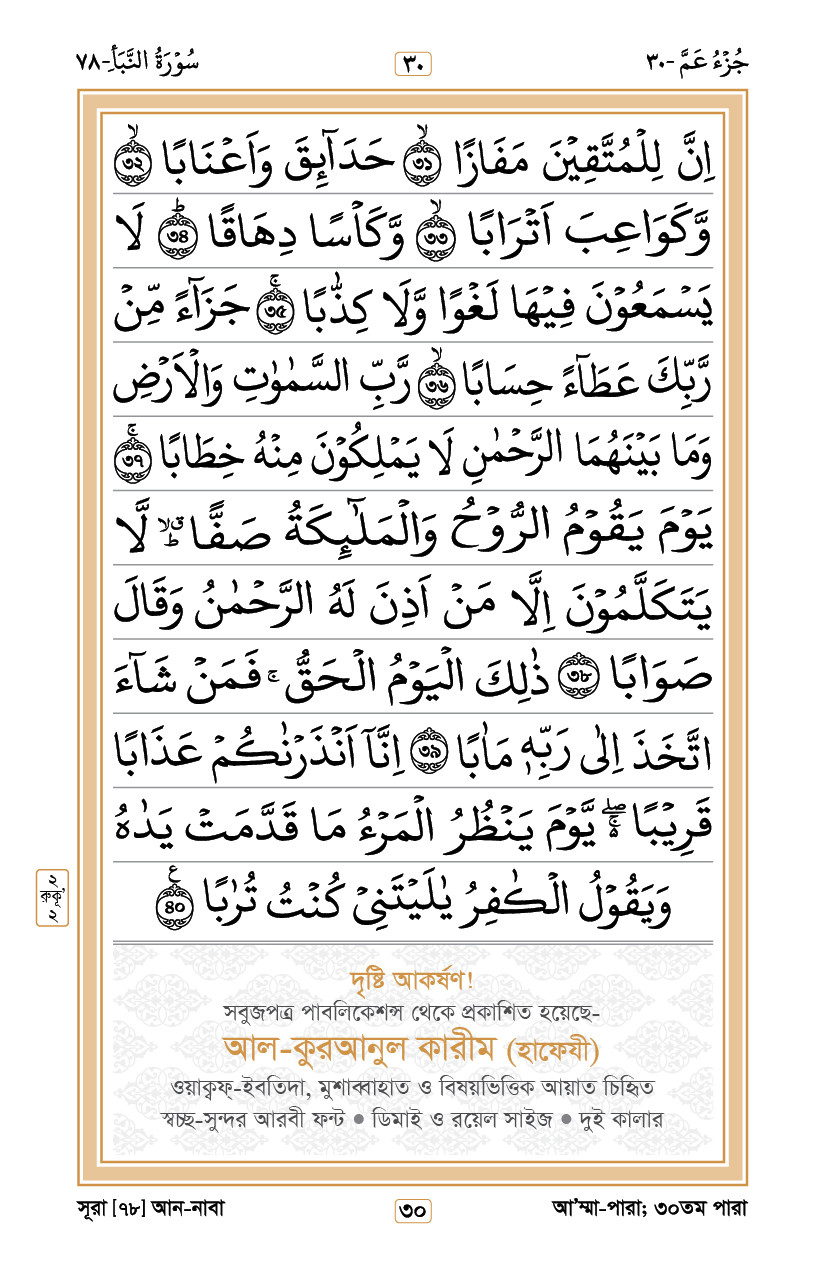 جُزْءُ عَمَّ -٣٠
٣٠
سُوْرَةُ النَّبَاِ-٧٨
اِنَّ لِلْمُتَّقِيْنَ مَفَازًا ۙ‏﴿٣١﴾ حَدَآئِقَ وَاَعْنَابًا ۙ‏﴿٣٢﴾
وَّكَوَاعِبَ اَتْرَابًا ۙ‏﴿٣٣﴾ وَّكَاْسًا دِهَاقًا ؕ‏﴿٣٤﴾ لَا
يَسْمَعُوْنَ فِيْهَا لَغْوًا وَّلَا كِذّٰبًا ۚ‏﴿٣٥﴾ جَزَآءً مِّنْ
رَّبِّكَ عَطَآءً حِسَابًا ۙ‏﴿٣٦﴾ رَّبِّ السَّمٰوٰتِ وَالْاَرْضِ
وَمَا بَيْنَهُمَا الرَّحْمٰنِ لَا يَمْلِكُوْنَ مِنْهُ خِطَابًا ۚ‏﴿٣٧﴾
يَوْمَ يَقُوْمُ الرُّوْحُ وَالْمَلٰٓئِكَةُ صَفًّا ۙؕق لَّا
يَتَكَلَّمُوْنَ اِلَّا مَنْ اَذِنَ لَهُ الرَّحْمٰنُ وَقَالَ
صَوَابًا ﴿٣٨﴾ ذٰلِكَ الْيَوْمُ الْحَقُّ ۚ فَمَنْ شَآءَ
اتَّخَذَ اِلٰى رَبِّهٖ مَاٰبًا ﴿٣٩﴾ اِنَّاۤ اَنْذَرْنٰكُمْ عَذَابًا
قَرِيْبًا ۖۚ يَّوْمَ يَنْظُرُ الْمَرْءُ مَا قَدَّمَتْ يَدٰهُ
وَيَقُوْلُ الْكٰفِرُ يٰلَيْتَنِيْ كُنْتُ تُرٰبًا ﴿٤٠﴾ ع
২
রুকূ'
২
দৃষ্টি আকর্ষণ!
সবুজপত্র পাবলিকেশন্স থেকে প্রকাশিত হয়েছে-
আল-কুরআনুল কারীম (হাফেযী)
ওয়াক্বফ্-ইবতিদা, মুশাব্বাহাত ও বিষয়ভিত্তিক আয়াত চিহ্নিত
স্বচ্ছ-সুন্দর আরবী ফন্ট ● ডিমাই ও রয়েল সাইজ ● দুই কালার
সূরা [৭৮] আন-নাবা
৩০
আ'ম্মা-পারা; ৩০তম পারা